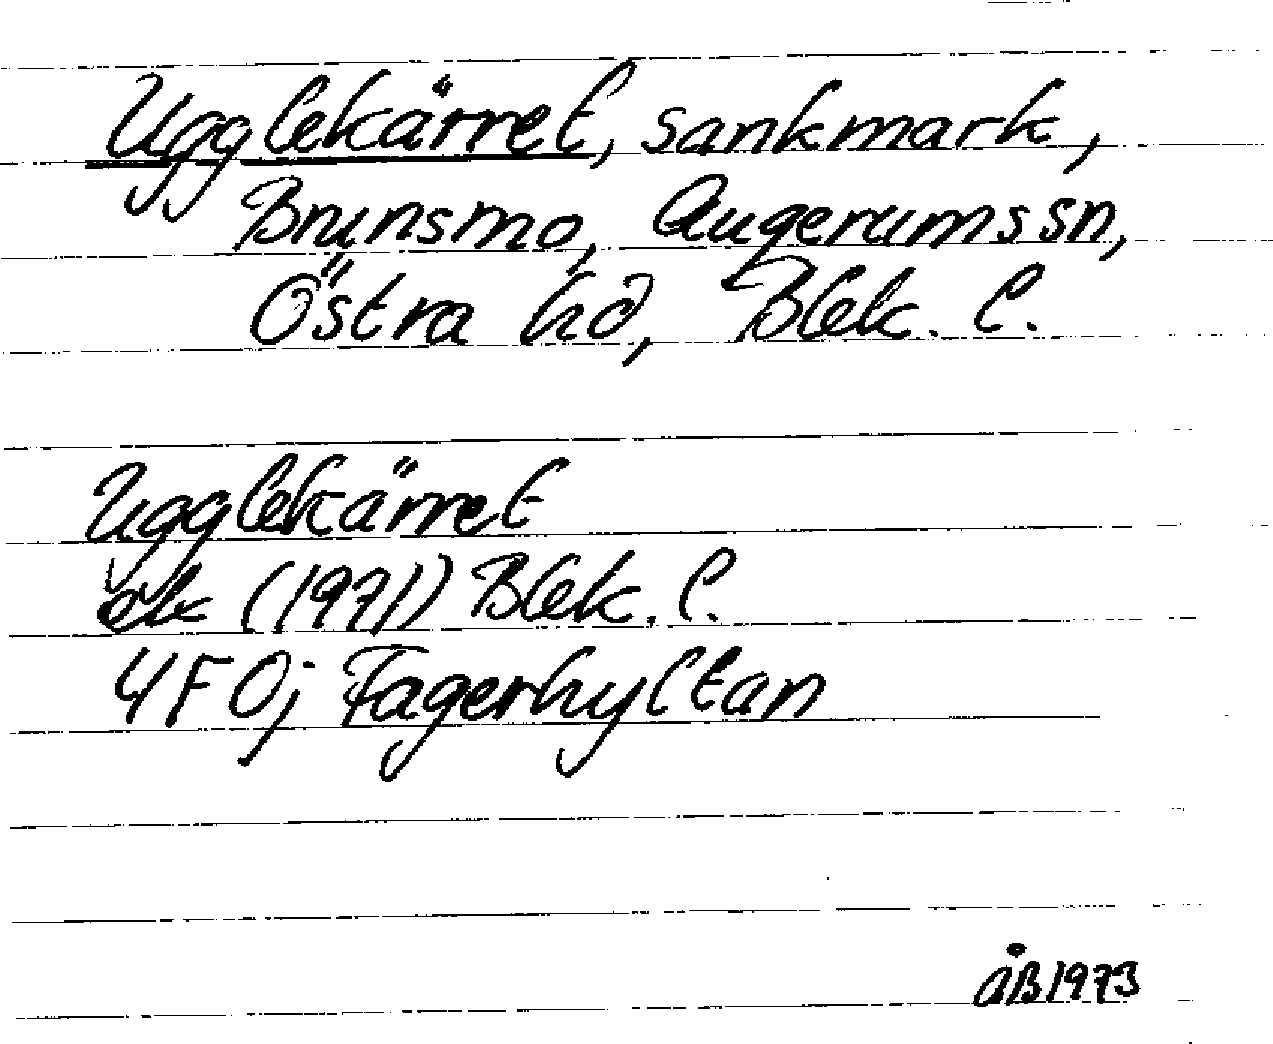 Ugglekärret, sankmark,
Brunsmo, Augerums sn,
Östra hd, Blek. l.
Ugglekärret
ek (1971) Blek. l.
4F 0j Fagerhyltan
ÅB 1973